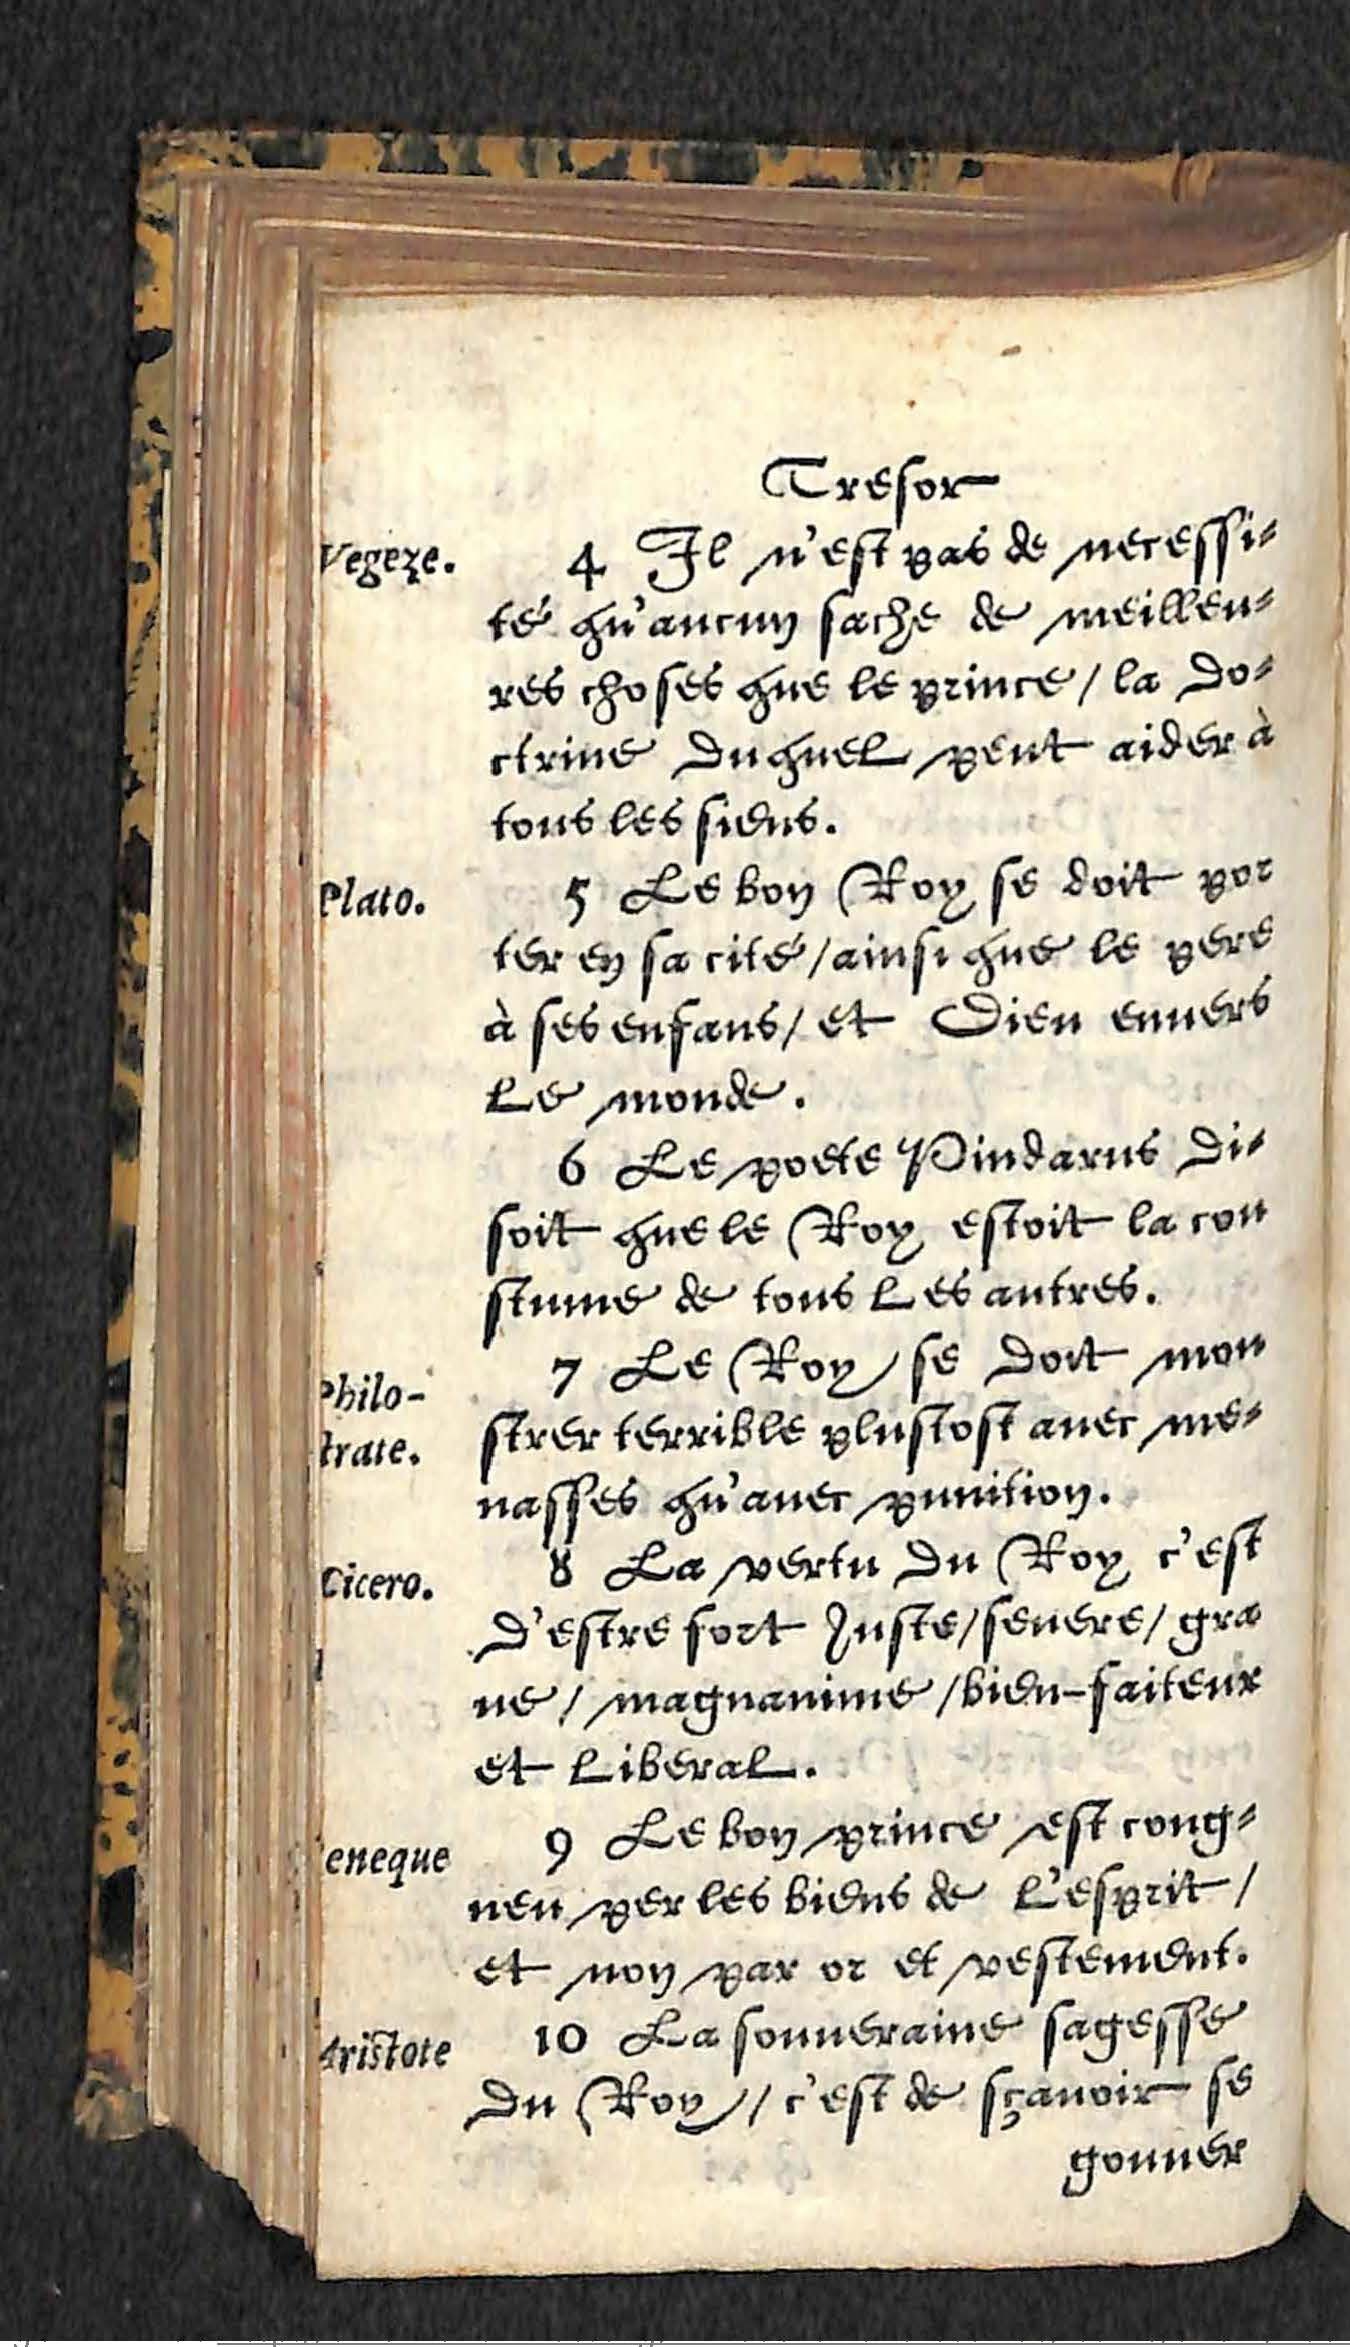 Tresor
Vegeze.
4 Il n'est pas de necessi-
té qu'aucun sache de meilleu-
res choses que le prince/ la do-
ctrine duquel peut aider à
tous les siens.
Plato.
5 Le bon Roy se doit por
ter en sa cité/ainsi que le pere
à ses enfans/ et Dieu enuers
le monde.
6 Le poete Pindarus di-
soit que le Roy estoit la cou
stume de tous les autres.
Philo-
strate.
7 Le Roy se doit mon
strer terrible plustost auec me-
nasses qu'auec punition.
Cicero.
8 La vertu du Roy c'est
d'estre fort Juste/seuere/ gra
ue/ magnanime /bien-faiteur
et liberal.
eneque
9 Le bon prince est cong-
neu per les biens de l'esprit/
et non par or et vestement.
Aristote
10 La souueraine sagesse
du Roy/ c'est de sçauoir se
gouuer